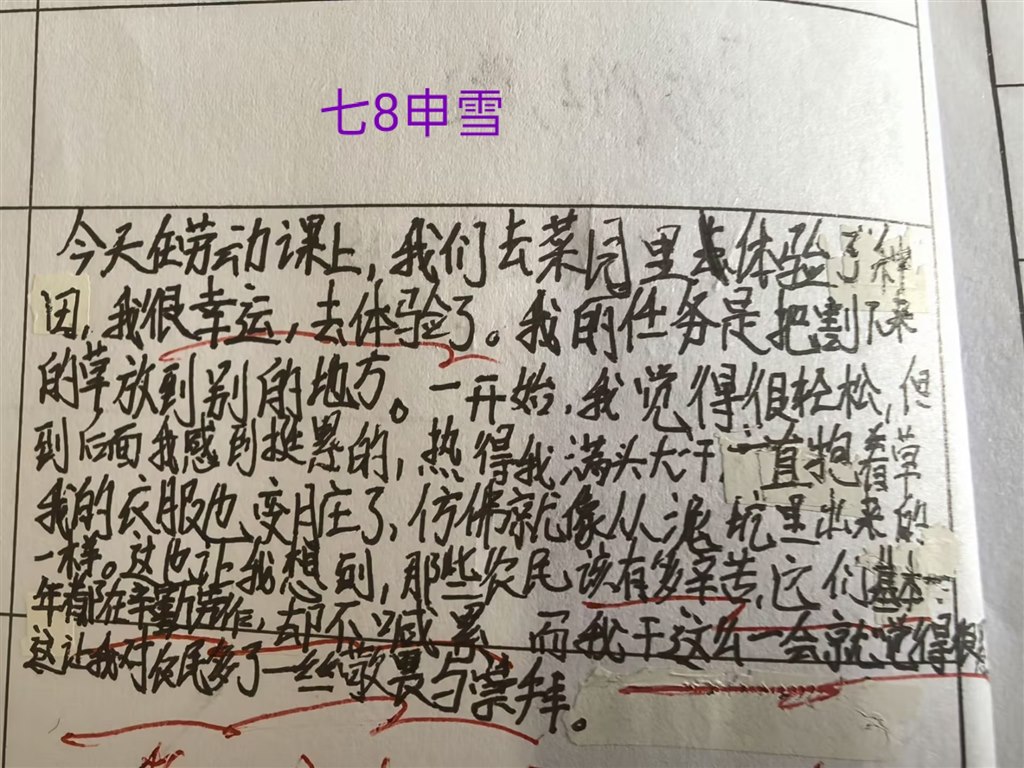 七8申雪
今天在劳动课上,我们去菜园里去体验了种
田,我很幸运,去体验了。我的任务是把割下来
的草放到别的地方。一开始,我觉得很轻松,但
到后面我感到挺累的,热得我满头大汗,一直抱着草
我的衣服也变脏了,仿佛就像从泥坑里出来的
一样。这也让我想到,那些农民该有多辛苦,它们基本一
年都在辛勤劳作,却不喊累,而我干这么一会就觉得很
这让我对农民多了一丝敬畏与崇拜。